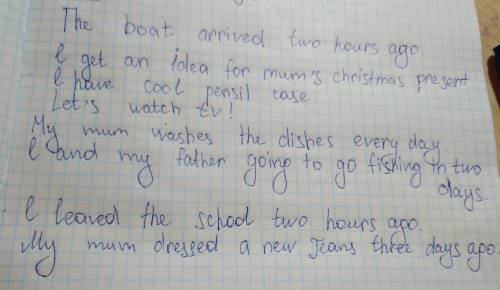 The boat arrived two hours ago.
I get an idea for mum's christmas present
I have cool pensil case.
Let's watch tv!
My mum washes the dishes every day
I and my father going to go fishing in two
days.
I leaved the school two hours ago.
My mum dressed a new jeans three days ago.